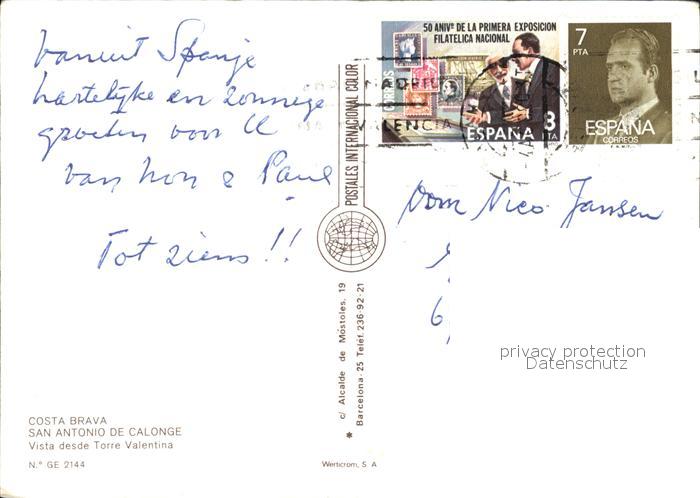 Vanuit Spanje
hartelijke en zonnige
groeten voor U
van Non & Paul
Tot ziens !!
50 ANIVº DE LA PRIMERA EXPOSICION
FILATELICA NACIONAL
CORREOS
ESPAÑA 8
PTA
7
PTA
ESPAÑA
CORREOS
Dom Nico Jansen
6
privacy protection
Datenschutz
POSTALES INTERNACIONAL COLOR
c/ Alcalde de Móstoles, 19
Barcelona-25 Teléf. 236-92-21
*
COSTA BRAVA
SAN ANTONIO DE CALONGE
Vista desde Torre Valentina
N.º GE 2144
Werticrom, S A